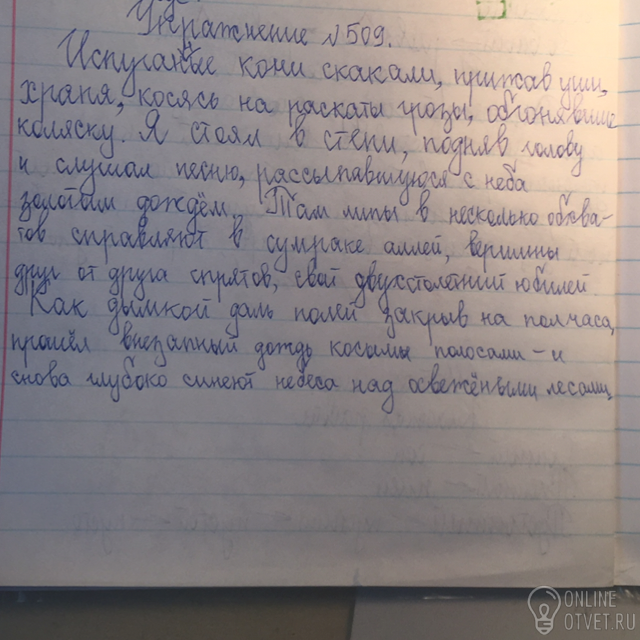 Упражнение №509.
Испуганые кони скакали, прижав уши,
храпя, косясь на раскаты грозы, обгонявшие
коляску. Я стоял в степи, подняв голову
и слушал песню, рассыпавшуюся с неба
золотым дождём. Там липы в несколько обхва-
тов справляют в сумраке аллей, вершины
друг от друга спрятов, свой двухстолетний юбилей
Как дымкой даль полей закрыв на полчаса,
прошёл внезапный дождь косыми полосами – и
снова глубоко синеют небеса над освежёными лесами.
ONLINE
OTVET.RU